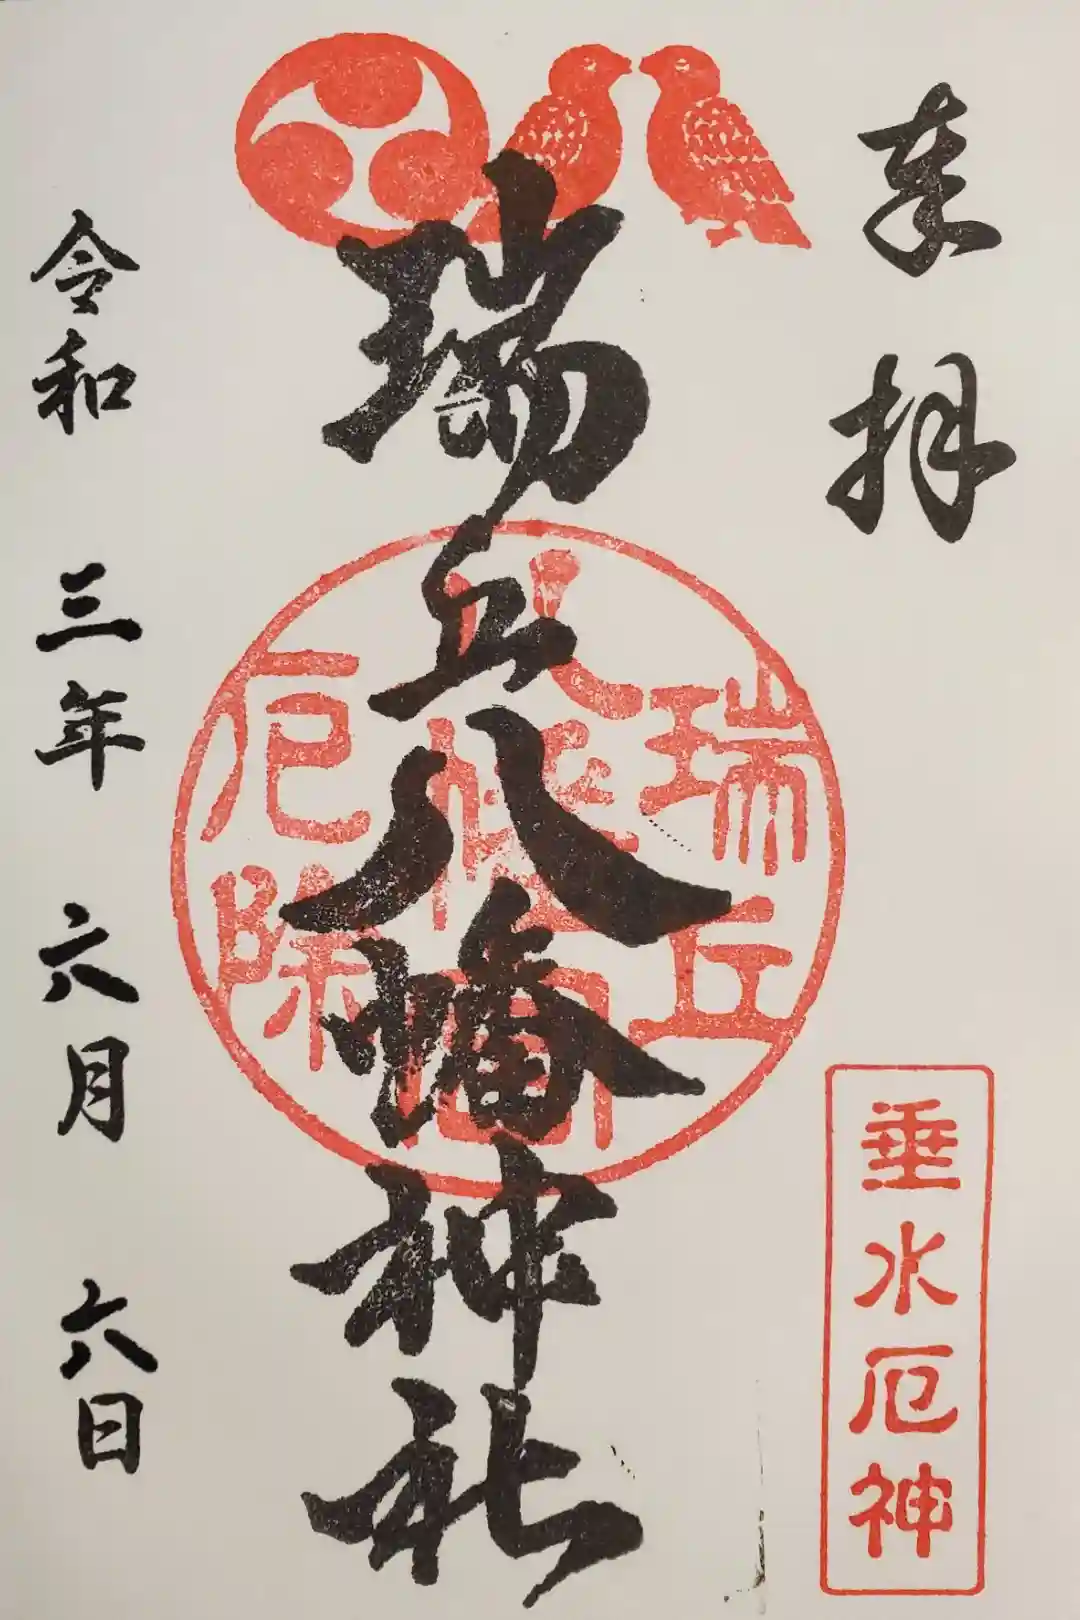 奉拝
垂水厄神
瑞丘八幡神社
瑞丘
八幡神社
厄除
令和三年六月六日